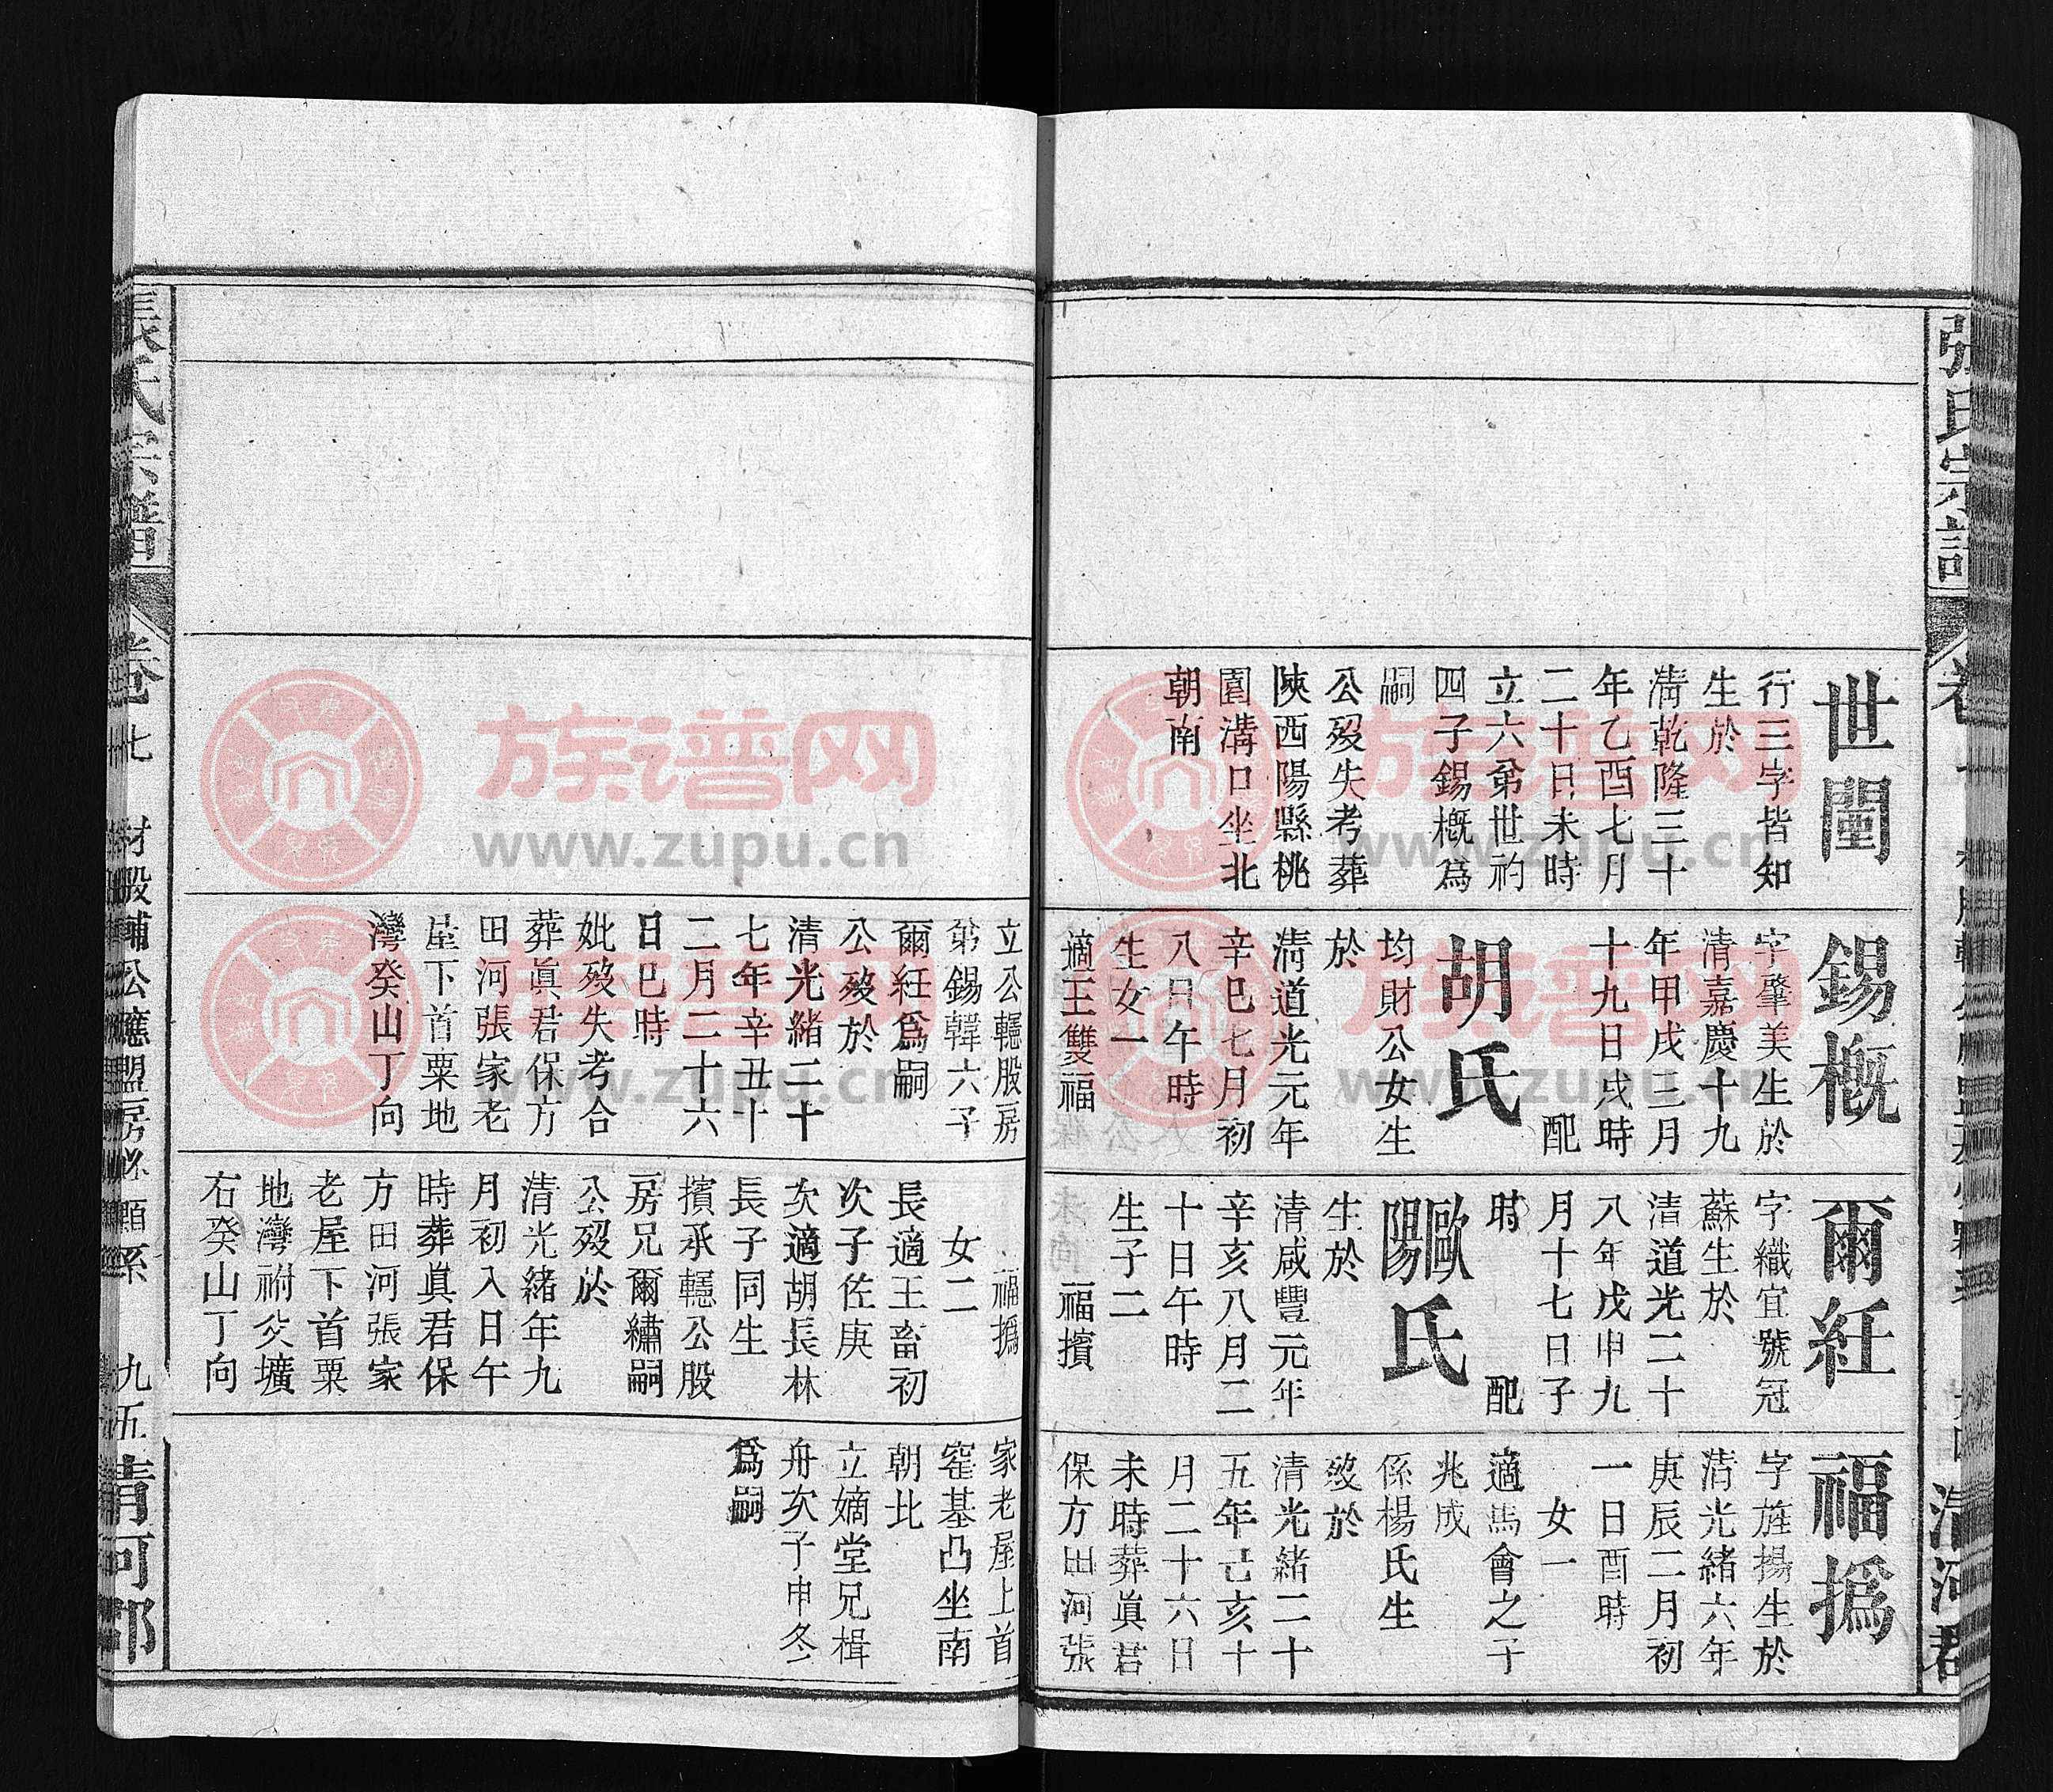 世閨
行三字皆知
生於
淸乾隆三十
年乙酉七月
二十日未時
立六弟世礿
四子錫槪爲
嗣
公歿失考葬
陝西陽縣桃
園溝口坐北
朝南
錫槪
字肇美生於
清嘉慶十九
年甲戌三月
十九日戌時
配
胡氏
均財公女生
於
淸道光元年
辛巳七月初
八日午時
生女一
適王雙福
爾紝
字織宜號冠
蘇生於
清道光二十
八年戊申九
月十七日子
時 配
歐陽氏
生於
清咸豐元年
辛亥八月二
十日午時
生子二
福擯
福撝
字旌揚生於
淸光緒六年
庚辰二月初
一日酉時
女一
適馬會之子
兆成
係楊氏生
歿於
清光緒二十
五年己亥十
月二十六日
未時葬眞君
保方田河張
立公轀股房
弟錫韓六子
爾紝爲嗣
公歿於
清光緒二十
七年辛丑十
二月二十六
日巳時
妣歿失考合
葬眞君保方
田河張家老
屋下首粟地
灣癸山丁向
福撝
女二
長適王畜初
次子佐庚
次適胡長林
長子同生
擯承轀公股
房兄爾繡嗣
公歿於
清光緒年九
月初入日午
時葬眞君保
方田河張家
老屋下首粟
地灣祔父壙
右癸山丁向
家老屋上首
窰基凸坐南
朝北
立嫡堂兄楫
舟次子申冬
爲嗣
張氏宗譜
卷七
材股輔公應盟房必顯系
九五
清河郡
族谱网
www.zupu.cn